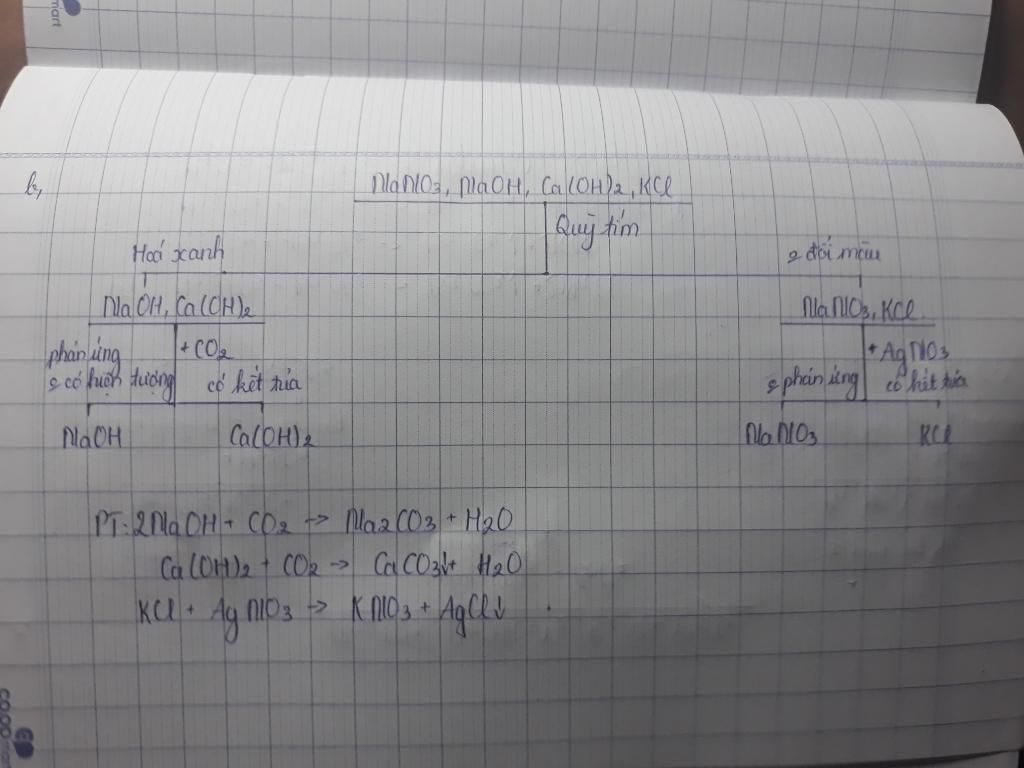 mart
b,
NaNO3, NaOH, Ca(OH)2, KCl
Quỳ tím
Hoá xanh
đổi màu
NaOH, Ca(OH)2
NaNO3, KCl
phản ứng
+ CO2
+ AgNO3
có hiện tượng
có kết tủa
phản ứng
có kết tủa
NaOH
Ca(OH)2
NaNO3
KCl
PT: 2NaOH + CO2 → Na2CO3 + H2O
Ca(OH)2 + CO2 → CaCO3↓ + H2O
KCl + AgNO3 → KNO3 + AgCl↓